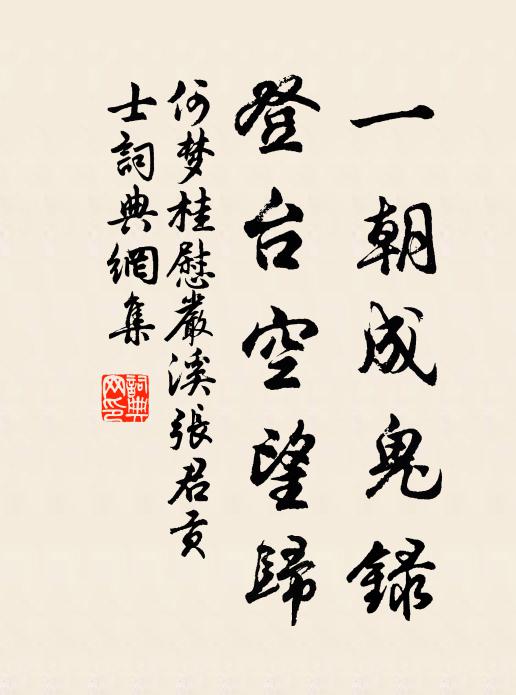 一朝成鬼録
登台空望歸
何梦桂慰嚴溪張君貢
士詞典網集
詞典网印